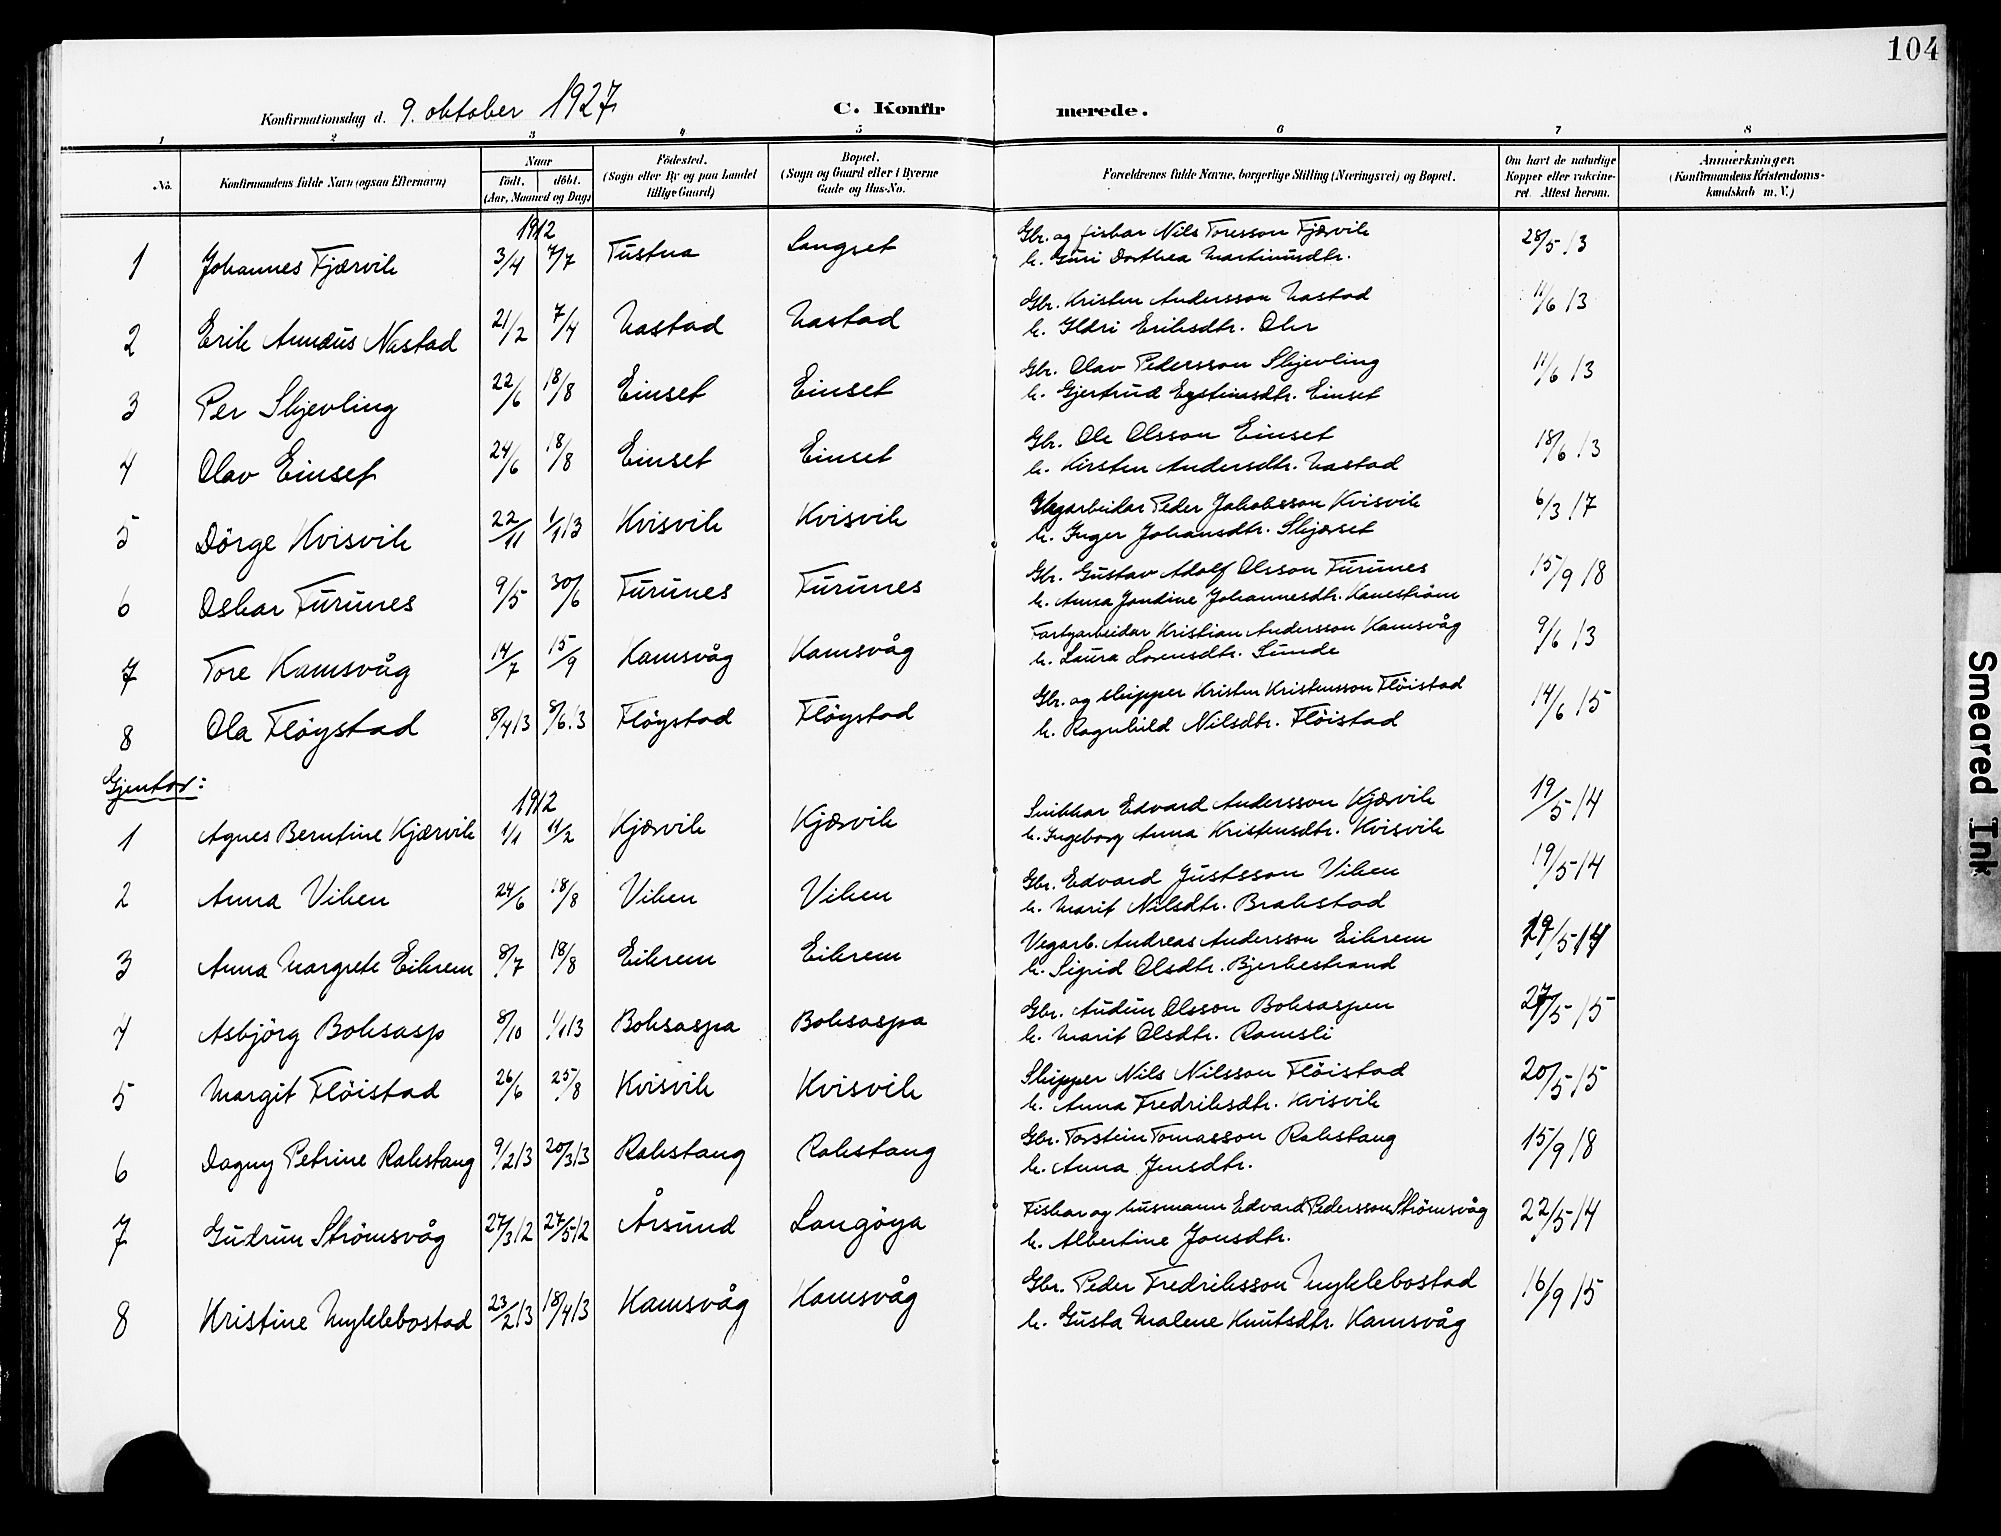 104
Konfirmationsdag d. 9. oktober 1927
C. Konfirmerede.
1 2 3 4 5 6 7 8
No. Konfirmandens fulde Navn (ogsaa Efternavn) Naar født. døbt. (Aar, Maaned og Dag) Fødested. (Sogn eller By og paa Landet tillige Gaard) Bopæl. (Sogn og Gaard eller i Byerne Gade og Hus-No. Forældrenes fulde Navne, borgerlige Stilling (Næringsvei) og Bopæl. Om havt de naturlige Kopper eller vaksineret. Attest herom. Anmerkninger. (Konfirmandens Kristendomskundskab m. V.)
1912
1 Johannes Fjærvik 3/4 7/7 Tustna Langset Gbr. og fiskar Nils Toresson Fjærvik 28/5 13
k. Guri Dorthea Martinusdtr.
2 Erik Annæus Nastad 21/2 7/4 Nastad Nastad Gbr. Kristen Andersson Nastad 11/6 13
k. Ildri Eriksdtr. Ohr
3 Per Skjevling 22/6 18/8 Einset Einset Gbr. Olav Pedersson Skjevling 11/6 13
k. Gjertrud Eystinsdtr. Einset
4 Olav Einset 24/6 18/8 Einset Einset Gbr. Ole Olsson Einset 18/6 13
k. Kirsten Andersdtr. Nastad
5 Dörge Kvisvik 22/11 1/1 13 Kvisvik Kvisvik Vegarbeidar Peder Jakobsson Kvisvik 6/3 17
k. Inger Johansdtr. Skjærset
6 Oskar Furunes 9/5 30/6 Furunes Furunes Gbr. Gustav Adolf Olsson Furunes 15/9 18
k. Anna Jondine Johannesdtr. Kanestrøm
7 Tore Kamsvåg 14/7 15/9 Kamsvåg Kamsvåg Fartyarbeidar Kristian Andersson Kamsvåg 9/6 13
k. Laura Lorensdtr. Sunde
8 Ola Fløystad 8/4 13 8/6 13 Fløystad Fløystad Gbr. og skipper Kristen Kristensson Fløistad 14/6 15
k. Ragnhild Nilsdtr. Fløistad
Gjentor:
1912
1 Agnes Berntine Kjærvik 1/1 11/2 Kjærvik Kjærvik Snikkar Edvard Andersson Kjærvik 19/5 14
k. Ingeborg Anna Kristensdtr. Kvisvik
2 Anna Viken 24/6 18/8 Viken Viken Gbr. Edvard Justsson Viken 19/5 14
k. Marit Nilsdtr. Brakstad
3 Anna Margrete Eikrem 8/7 18/8 Eikrem Eikrem Vegarb. Andreas Andersson Eikrem 19/5 14
k. Sigrid Olsdtr. Bjerkestrand
4 Asbjörg Boksasp 8/10 1/1 13 Boksaspa Boksaspa Gbr. Audun Olsson Boksaspen 27/5 15
k. Marit Olsdtr. Ramsli
5 Margit Flöistad 26/6 25/8 Kvisvik Kvisvik Skipper Nils Nilsson Flöistad 20/5 15
k. Anna Fredriksdtr. Kvisvik
6 Dagny Petrine Rakstang 9/2 13 20/3 13 Rakstang Rakstang Gbr. Torstein Tomasson Rakstang 15/9 18
k. Anna Jensdtr.
7 Gudrun Strömsvåg 27/3 12 27/5 12 Årsund Langöya Fiskar og husmann Edvard Pedersson Strömsvåg 22/5 14
k. Albertine Jonsdtr.
8 Kristine Myklebostad 23/2 13 18/4 13 Kamsvåg Kamsvåg Gbr. Peder Fredriksson Myklebostad 16/9 15
k. Gusta Malene Knutsdtr. Kamsvåg
Smeared Ink